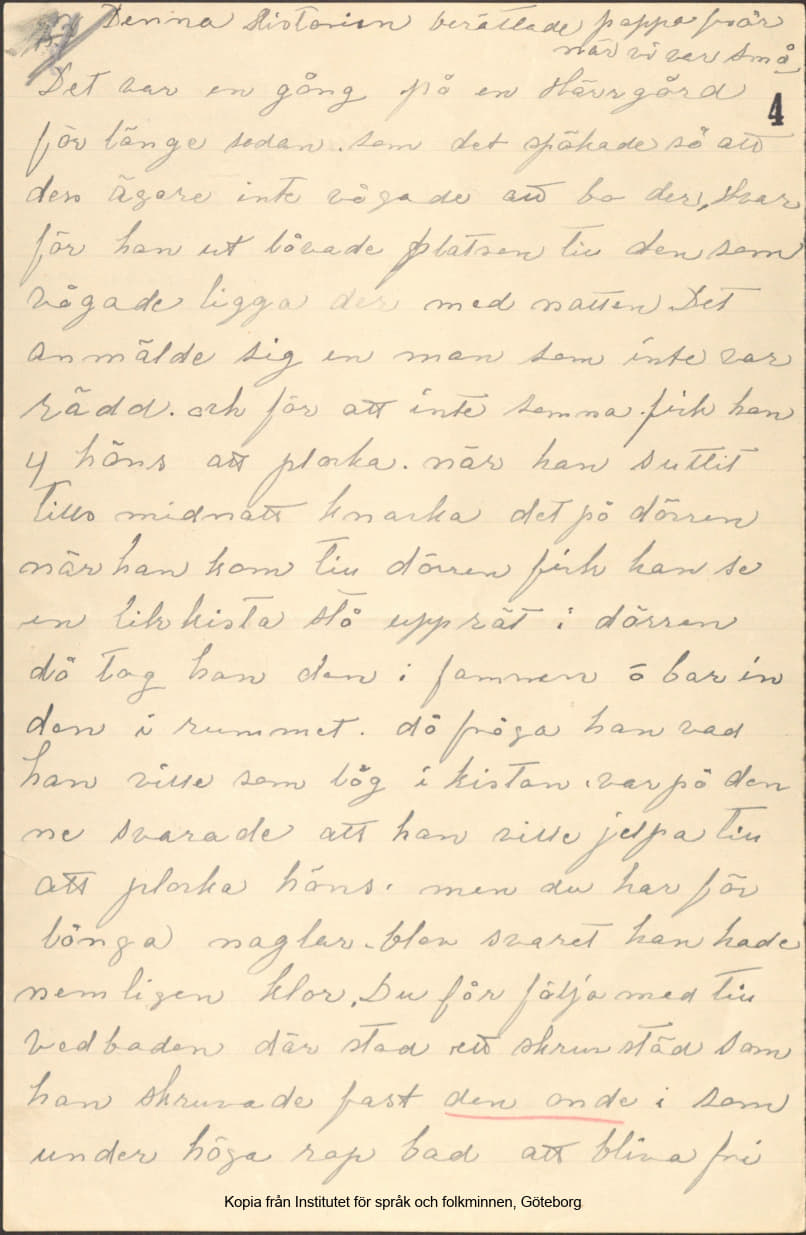 Denna Historien berättade pappa för
när vi var små
4
Det var en gång på en Härrgård
för länge sedan. som det spökade så att
den ägare inte vågade att bo der, Hvar
för han ut låvade platsen till den som
vågade ligga der med natten. Det
anmälde sig en man som inte var
rädd. och för att inte somna. fick han
4 höns att plocka. när han suttit
tills midnatt knacka det på dörren
när han kom till dörren fick han se
en likkista stå upprät i dörren
då tog han den i famnen å bar in
den i rummet. då fråga han vad
han ville som låg i kistan. varpå den
ne svarade att han ville jelpa till
att plocka höns. men du har för
långa naglar. blev svaret han hade
nemligen klor. Du får följa med till
vedboden där stod ett skruvstäd som
han skruvade fast den onde i som
under höga rop bad att bliva fri
Kopia från Institutet för språk och folkminnen, Göteborg